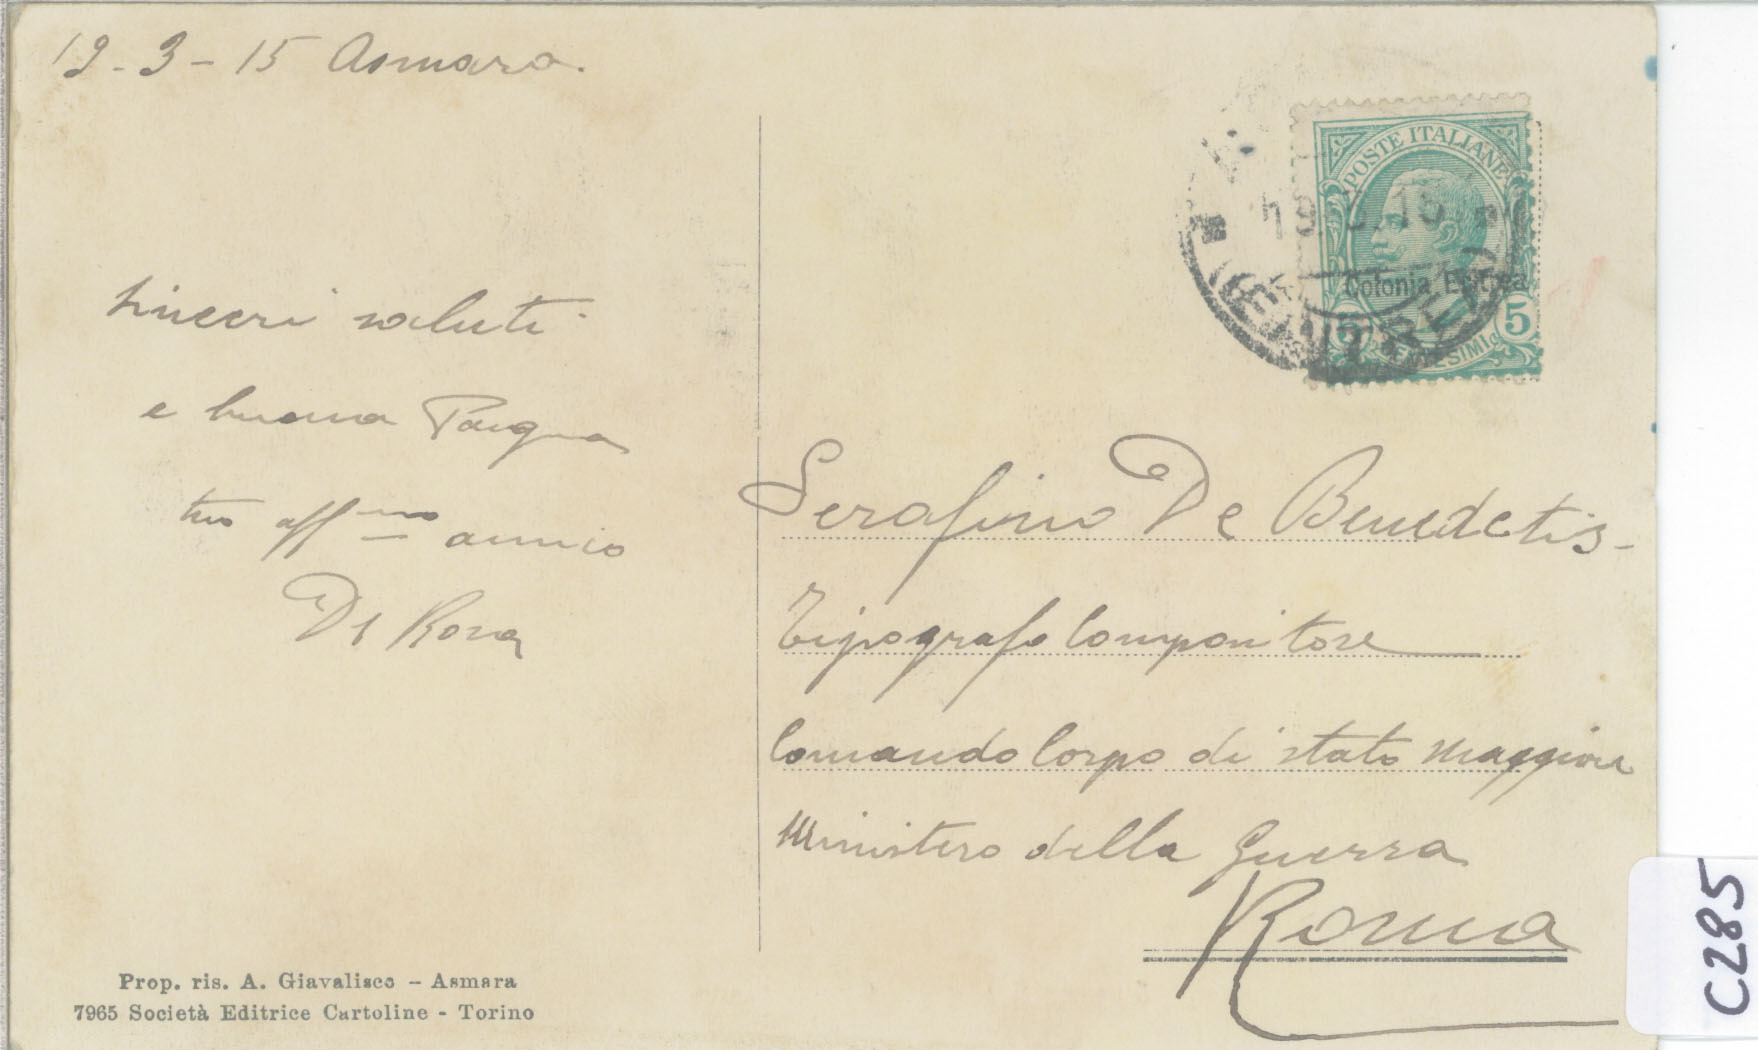 19-3-15 Asmara.
POSTE ITALIANE
19.3.15
Colonia Eritrea
5
(ERITREA)
sinceri saluti
e buona Pasqua
tuo affmo amico
De Rosa
Serafino De Benedetis-
Tipografo Compositore
Comando Corpo di stato Maggiore
Ministero della Guerra
Roma
Prop. ris. A. Giavalisco - Asmara
7965 Società Editrice Cartoline - Torino
C285